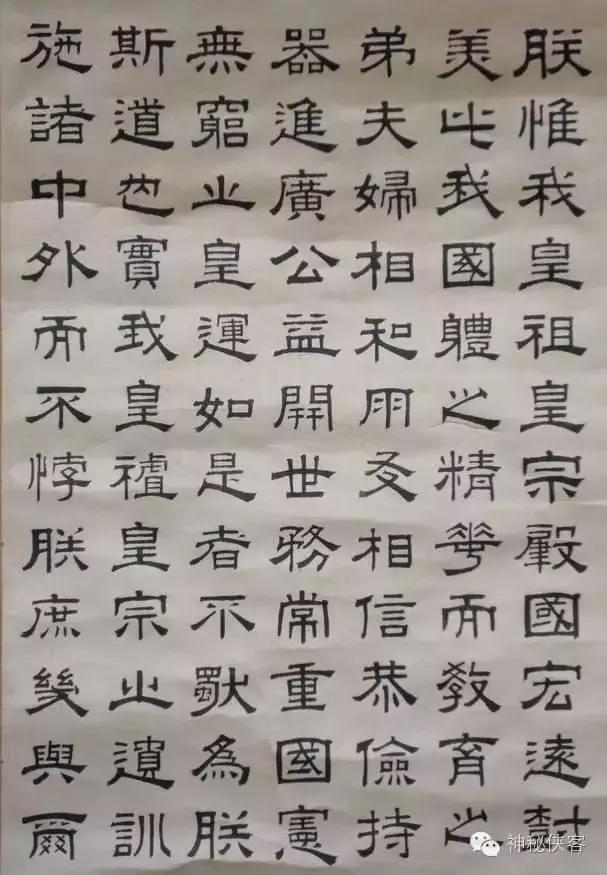 朕惟我皇祖皇宗肇國宏遠樹
美此我國體之精華而教育之
弟夫婦相和朋友相信恭儉持
器進廣公益開世務常重國憲
無窮之皇運如是者不獨為朕
斯道也實我皇祖皇宗之遺訓
施諸中外而不悖朕庶幾與爾
神秘侠客